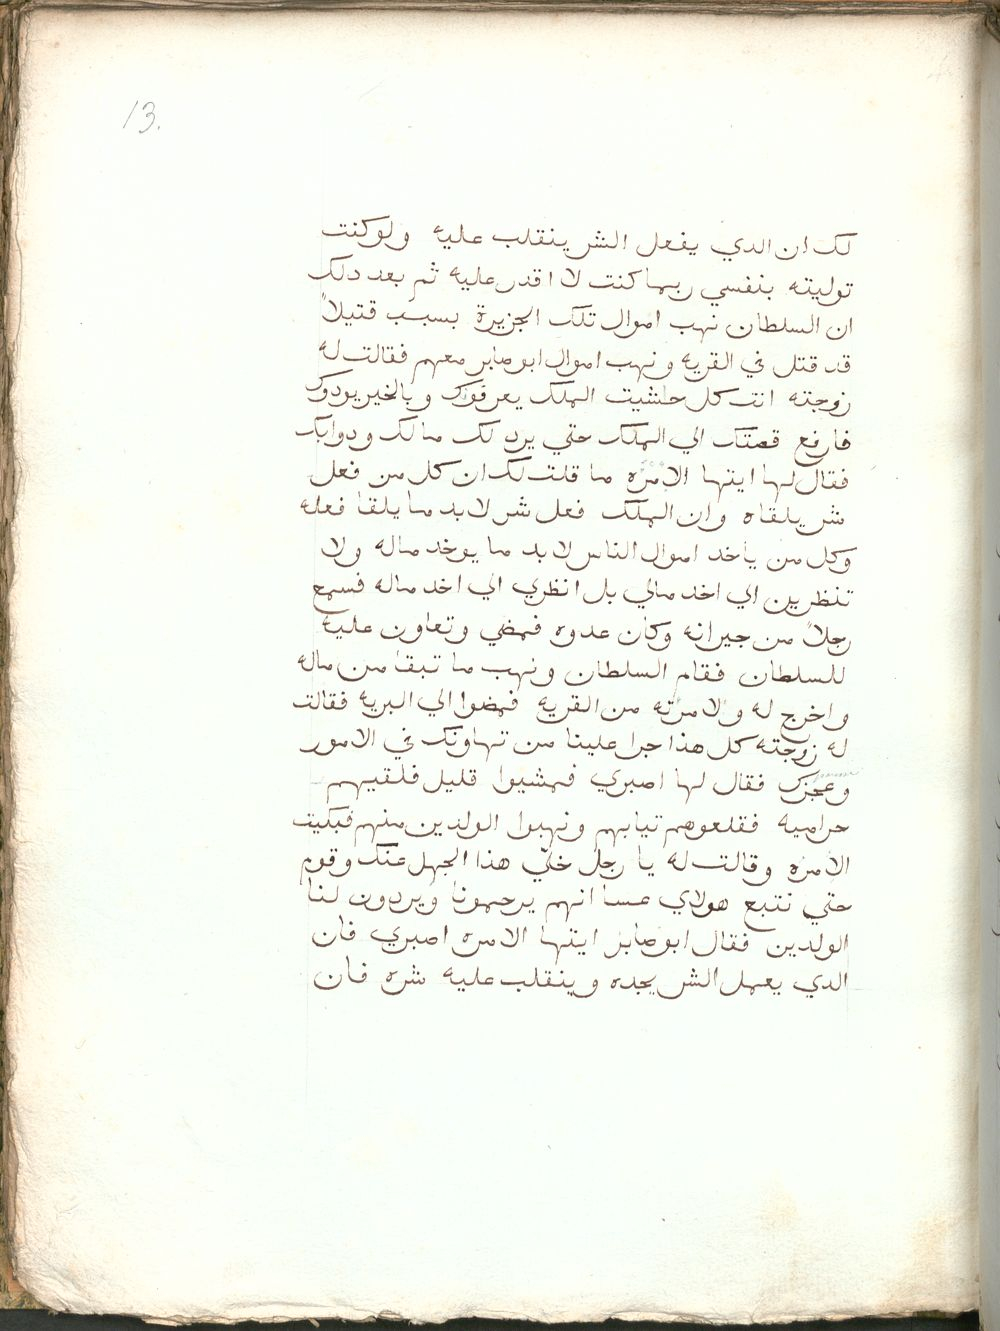 13.
لك ان الدي يفعل الشر ينقلب عليه ولو كنت
توليته بنفسي ربما كنت لا اقدر عليه ثم بعد دلك
ان السلطان نهب اموال تلك الجزيرة بسبب قتيلاً
قد قتل في القريه ونهب اموال ابو صابر معهم فقالت له
زوجته انت كل حاشيت الملك يعرفونك وبالخير يودوك
فارفع قصتك الي الملك حتي يرد لك مالك ودوابك
فقال لها ايتها الامرٰه ما قلت لك ان كل من فعل
شر يلقاه وان الملك فعل شر لابد ما يلقا فعله
وكل من ياخد اموال الناس لا بد ما يوخد ماله ولا
تنظرين الي اخد مالي بل انظري الي اخد ماله فسمع
رجلاً من جيرانه وكان عدوه فمضي وتعاون عليه
للسلطان فقام السلطان ونهب ما تبقا من ماله
واخرج له والامرته من القريه فمضوا الي البريه فقالت
له زوجته كل هذا جرا علينا من تهاونك في الامور
وعجزك فقال لها اصبري فمشيوا قليل فلقيهم
حراميه فقلعوهم تيابهم ونهبوا الولدين منهم فبكيت
الامره وقالت له يا رجل خلّي هذا الجهل عنك وقوم
حتي نتبع هولاي عسا انهم يرحمونا ويردون لنا
الولدين فقال ابو صابر ايتها الامره اصبري فان
الدي يعمل الشر يجده وينقلب عليه شره فان